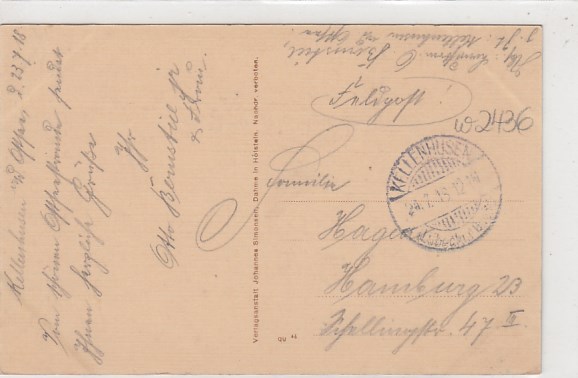 Kellenhusen a/d Ostsee, d. 23.7.18
Vom schönen Ostseestrande sendet
Ihnen herzliche Grüße
Ihr
Otto Bernstiel
Verlagsanstalt Johannes Simonsen, Dahme in Holstein. Nachdr. verboten.
Kellenhusen
Ostsee
Feldpost!
w2436
KELLENHUSEN
12
Familie
Hagen
Hamburg 23
Schellingstr. 47 II